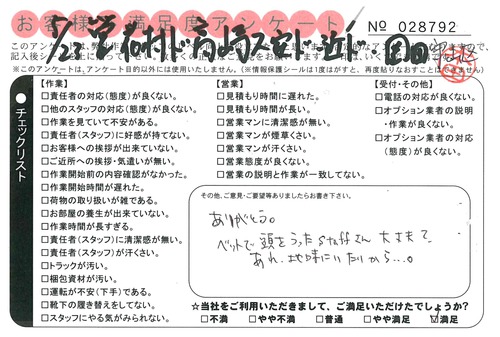 お客様満足度アンケート
No 028792
チェックリスト
【作業】
□責任者の対応(態度)が良くない。
□他のスタッフの対応(態度)が良くない。
□作業を見ていて不安がある。
□責任者(スタッフ)に好感が持てない。
□お客様への挨拶が出来ていない。
□ご近所への挨拶・気遣いが無い。
□作業開始前の内容確認がなかった。
□作業開始時間が遅れた。
□荷物の取り扱いが雑である。
□お部屋の養生が出来ていない。
□作業時間が長すぎる。
□責任者(スタッフ)に清潔感が無い。
□責任者(スタッフ)が汗くさい。
□トラックが汚い。
□梱包資材が汚い。
□運転が不安(下手)である。
□靴下の履き替えをしてない。
□スタッフにやる気がみられない。
【営業】
□見積もり時間に遅れた。
□見積もり時間が長い。
□営業マンに清潔感が無い。
□営業マンが煙草くさい。
□営業マンが汗くさい。
□営業態度が良くない。
□営業の説明と作業が一致してない。
【受付・その他】
□電話の対応が良くない。
□オプション業者の説明
・作業が良くない。
□オプション業者の対応
(態度)が良くない。
その他、ご意見・ご要望等ありましたらお書き下さい。
ありがとう。
ベットで頭をうったstaffさん大丈夫?
あれ、地味にいたいから…。
☆当社をご利用いただきまして、ご満足いただけたでしょうか?
□不満 □やや不満 □普通 □やや満足 ☑満足